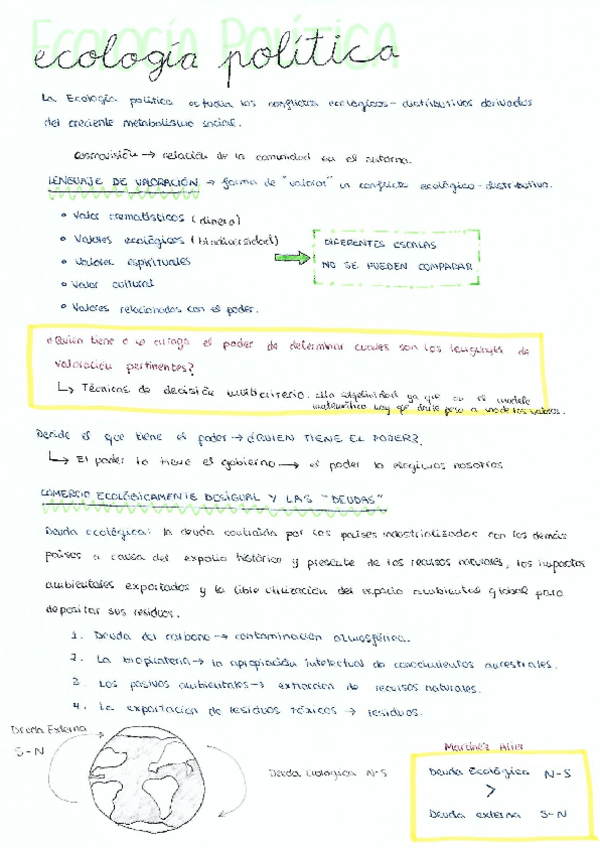 Ecología Política
ecología política
La Ecología política estudia los conflictos ecológicos-distributivos derivados
del creciente metabolismo social.
Cosmovisión → relación de la comunidad en el entorno.
LENGUAJE DE VALORACIÓN → forma de "valorar" un conflicto ecológico-distributivo.
• Valor crematísticos (dinero)
• Valores ecológicos (biodiversidad)
• Valores espirituales
• Valor cultural
• Valores relacionados con el poder.
DIFERENTES ESCALAS
NO SE PUEDEN COMPARAR
¿Quién tiene o se arroga el poder de determinar cuales son los lenguajes de
valoración pertinentes?
↳ Técnicas de decisión multicriterio. subjetividad ya que en el modelo
matemático hay que darle peso a uno de los valores.
Decide el que tiene el poder → ¿QUIEN TIENE EL PODER?
↳ El poder lo tiene el gobierno → el poder lo elegimos nosotros
COMERCIO ECOLÓGICAMENTE DESIGUAL Y LAS "DEUDAS"
Deuda ecológica: la deuda contraída por los países industrializados con los demás
países a causa del expolio histórico y presente de los recursos naturales, los impactos
ambientales exportados y la libre utilización del espacio ambiental global para
depositar sus residuos.
1. Deuda del carbono → contaminación atmosférica.
2. La biopiratería → la apropiación intelectual de conocimientos ancestrales.
3. Los pasivos ambientales → extracción de recursos naturales.
4. La exportación de residuos tóxicos → residuos.
Deuda Externa
S-N
Deuda Ecológica N-S
Martínez Alier
Deuda Ecológica N-S
>
Deuda externa S-N